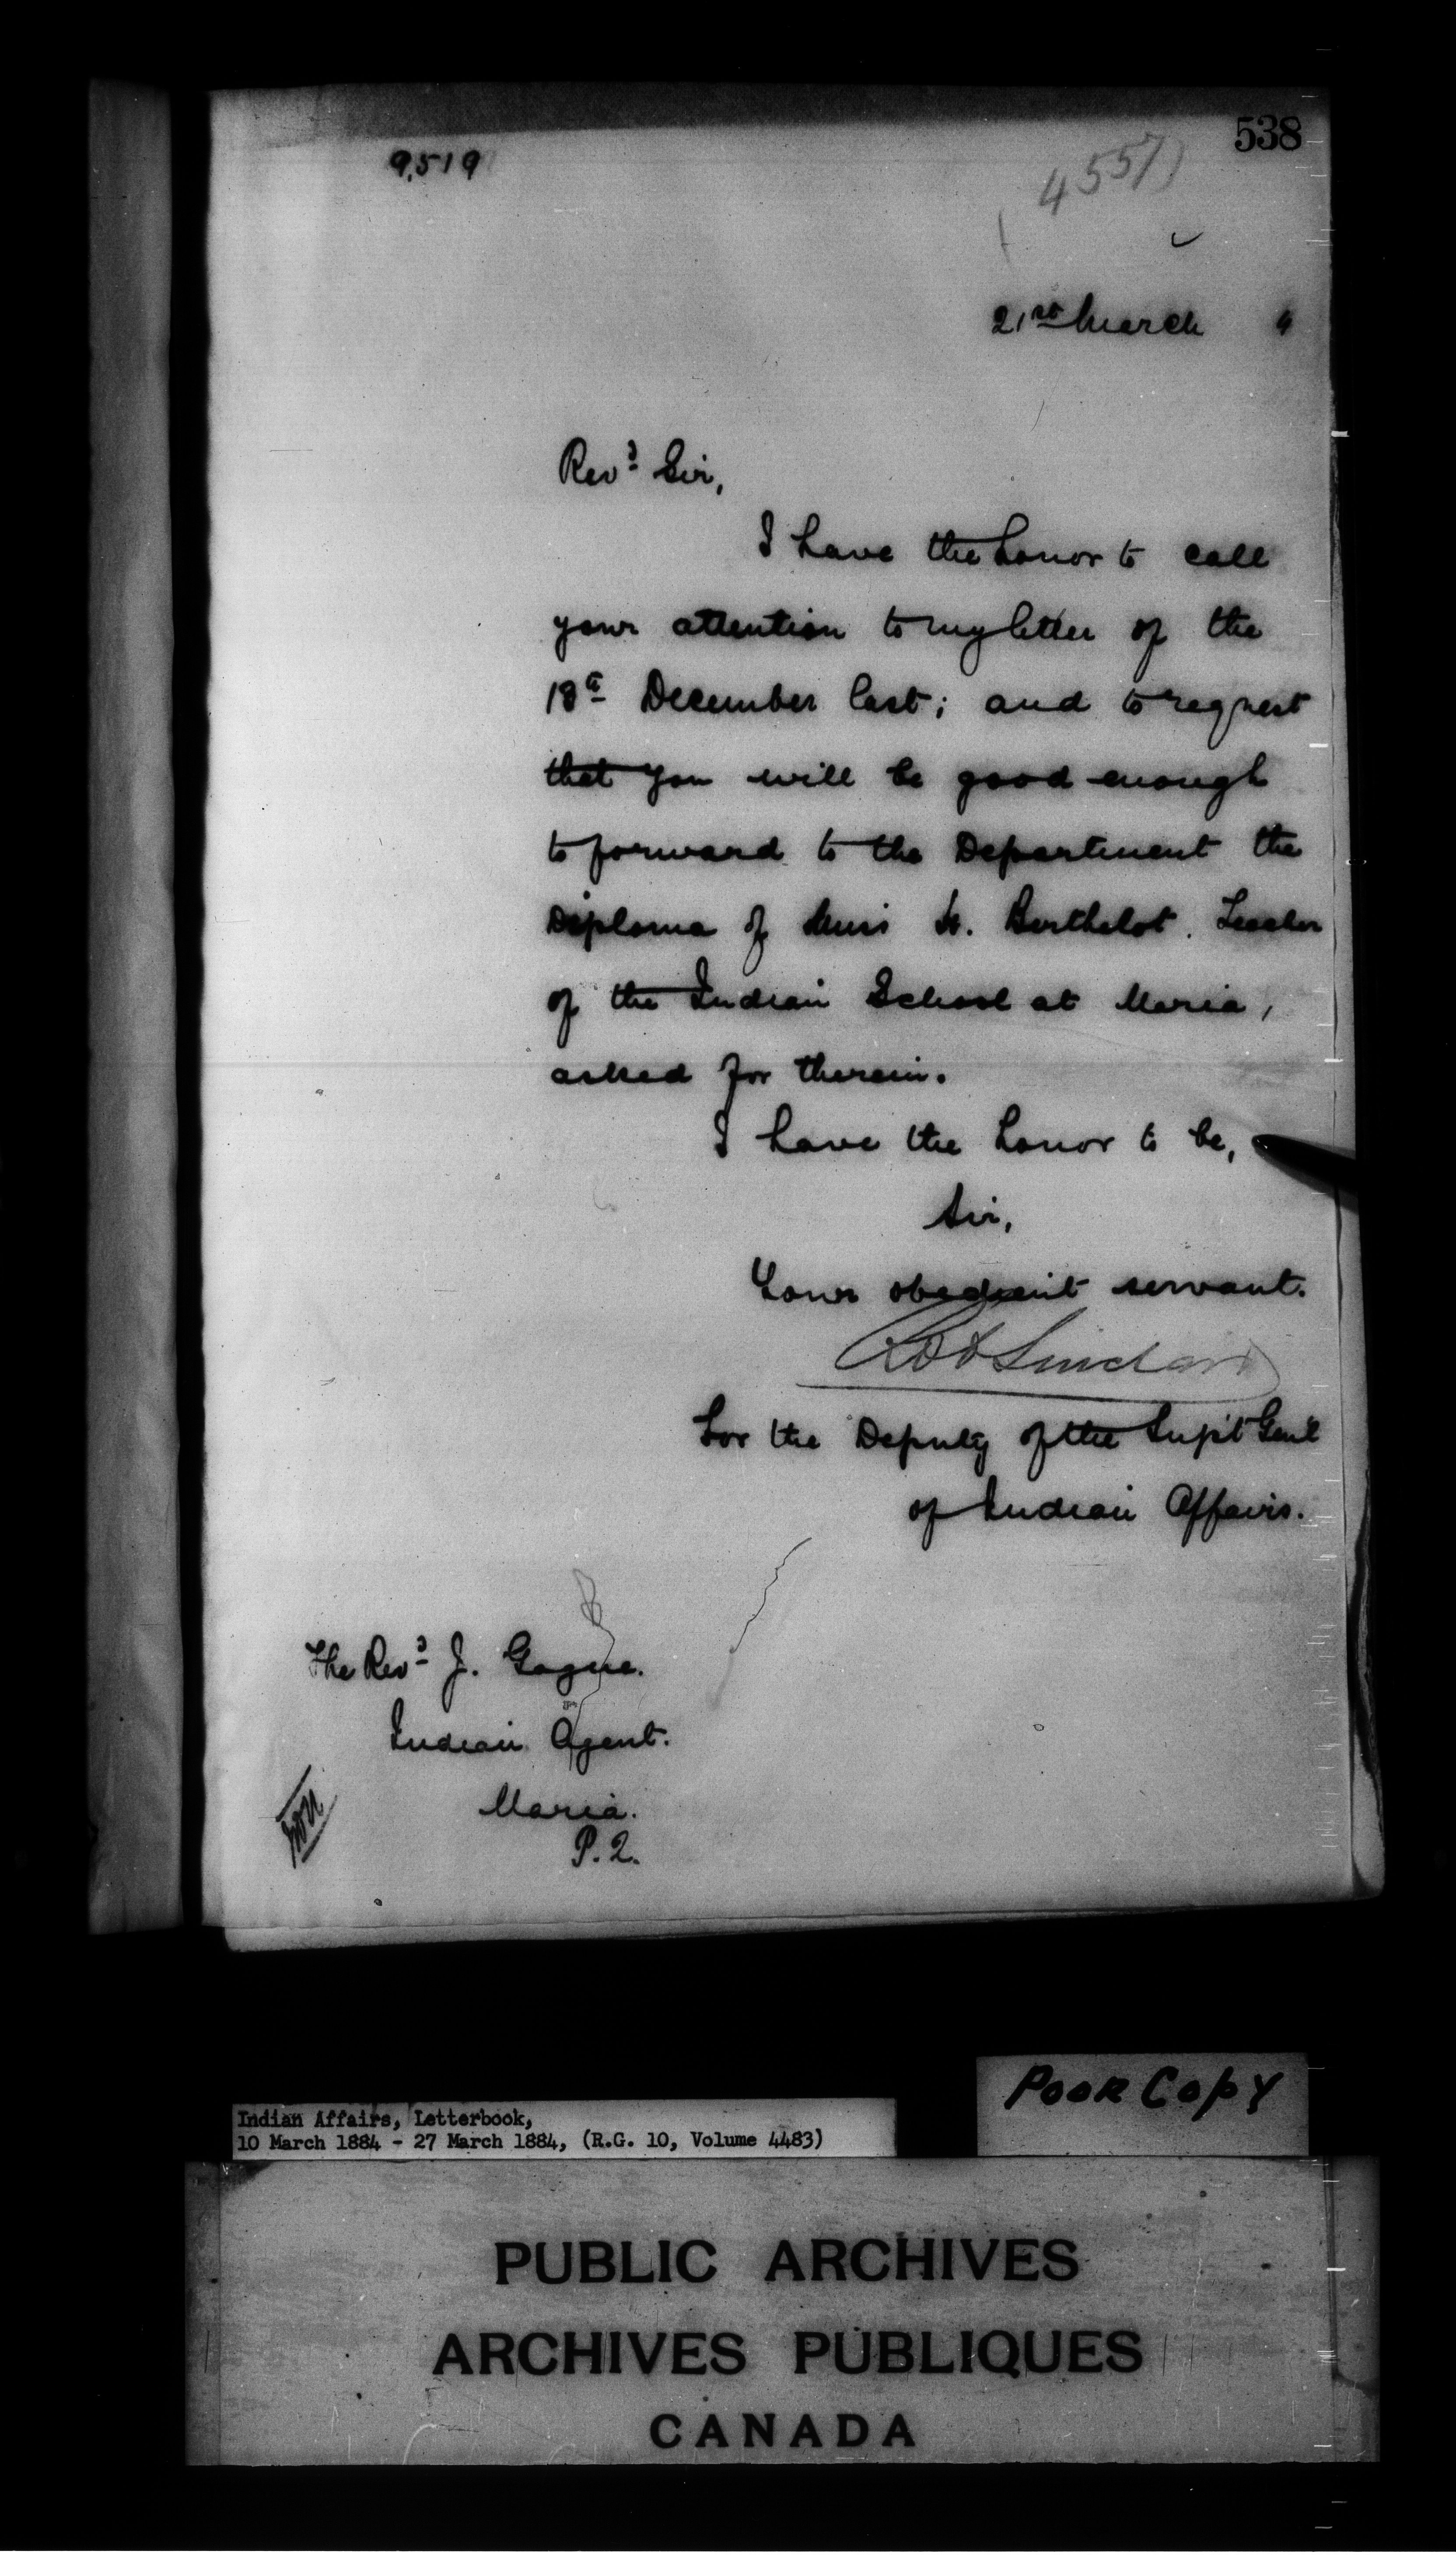 538
9519
4557
21st March 4
Revd Sir,
I have the honor to call
your attention to my letter of the
18th December last; and to request
that you will be good enough
to forward to the Department the
Diploma of Miss Berthelot. Teacher
of the Indian School at Maria,
asked for therein.
I have the honor to be,
Sir,
Your obedient servant.
Sinclair
For the Deputy of the Supt Genl
of Indian Affairs.
The Revd J. Gagne.
Indian Agent.
Maria.
P.Q.
Poor Copy
Indian Affairs, Letterbook,
10 March 1884 - 27 March 1884, (R.G. 10, Volume 4483)
PUBLIC ARCHIVES
ARCHIVES PUBLIQUES
CANADA